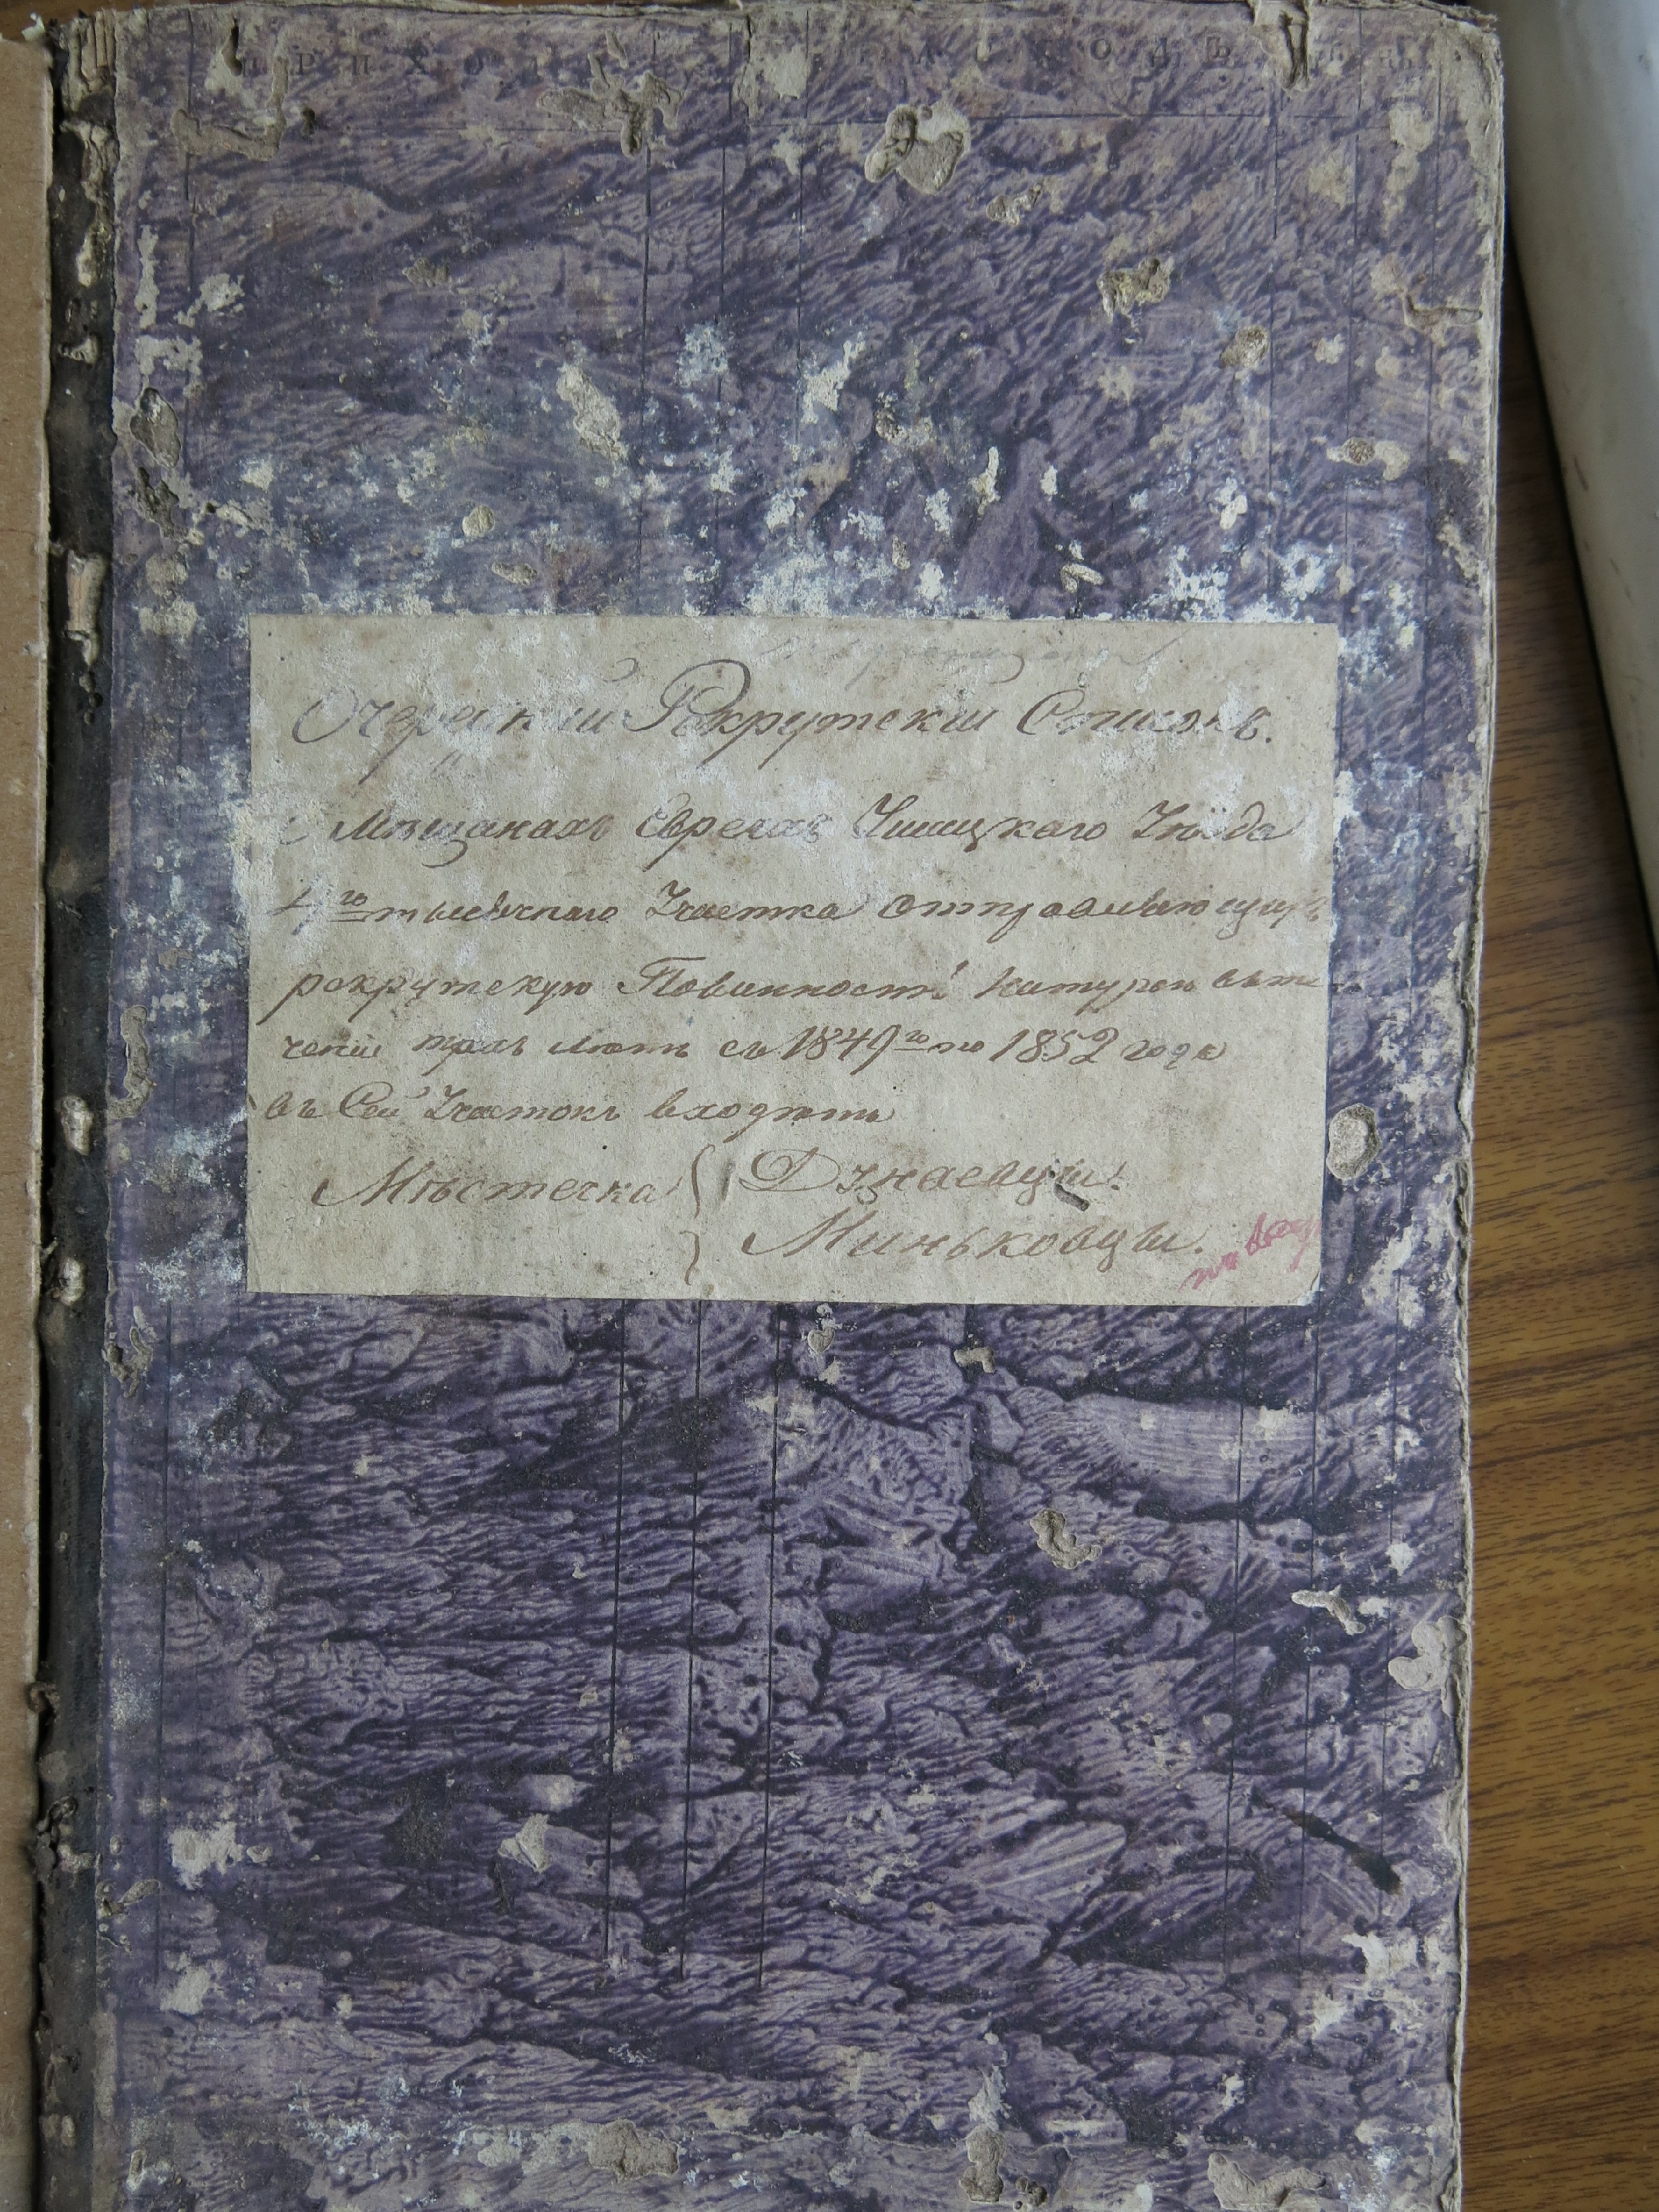 Очередный Рекрутскiй Списокъ.
о Мѣщанахъ Евреяхъ Ушицкаго Уѣзда
4го тысячнаго Участка отправляющихъ
рекрутскую Повинность Натурою въ те
ченiи трехъ лѣтъ съ 1849го по 1852 года
въ Сей Участокъ входятъ
Мѣстечка { Дунаевцы.
Миньковцы.